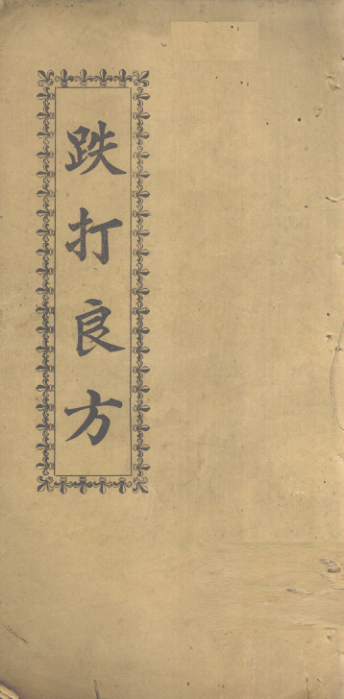 跌打良方